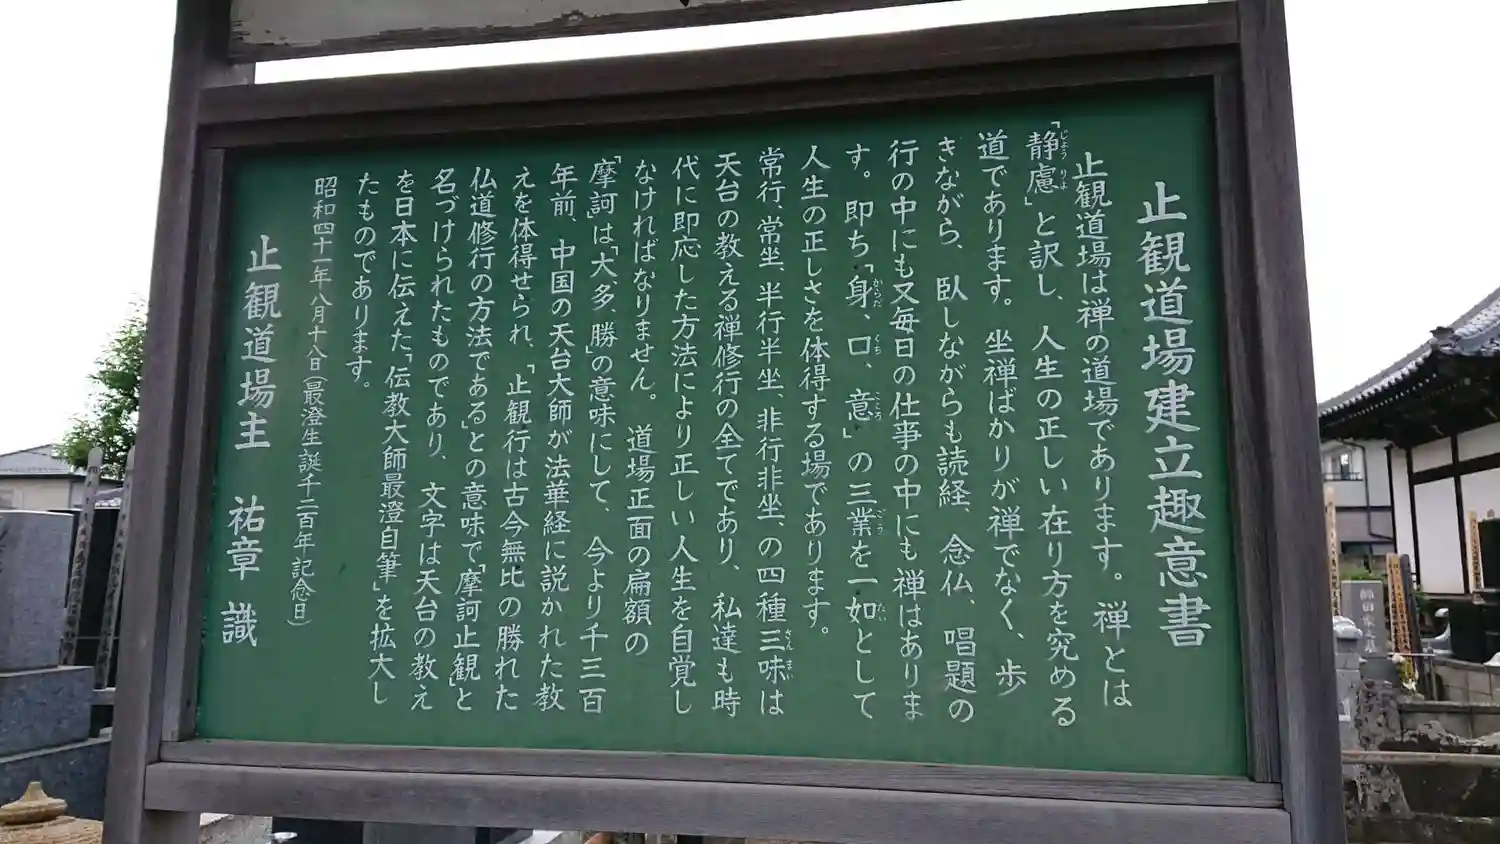 止観道場建立趣意書
止観道場は禅の道場であります。禅とは
「静慮」と訳し、人生の正しい在り方を究める
道であります。坐禅ばかりが禅でなく、歩
きながら、臥しながらも読経、念仏、唱題の
行の中にも又毎日の仕事の中にも禅はありま
す。即ち「身、口、意」の三業を一如として
人生の正しさを体得する場であります。
常行、常坐、半行半坐、非行非坐、の四種三昧は
天台の教える禅修行の全てであり、私達も時
代に即応した方法により正しい人生を自覚し
なければなりません。道場正面の扁額の
「摩訶」は「大、多、勝」の意味にして、今より千三百
年前、中国の天台大師が法華経に説かれた教
えを体得せられ、「止観行は古今無比の勝れた
仏道修行の方法である」との意味で「摩訶止観」と
名づけられたものであり、文字は天台の教え
を日本に伝えた「伝教大師最澄自筆」を拡大し
たものであります。
昭和四十一年八月十八日(最澄生誕千二百年記念日)
止観道場主 祐章 識